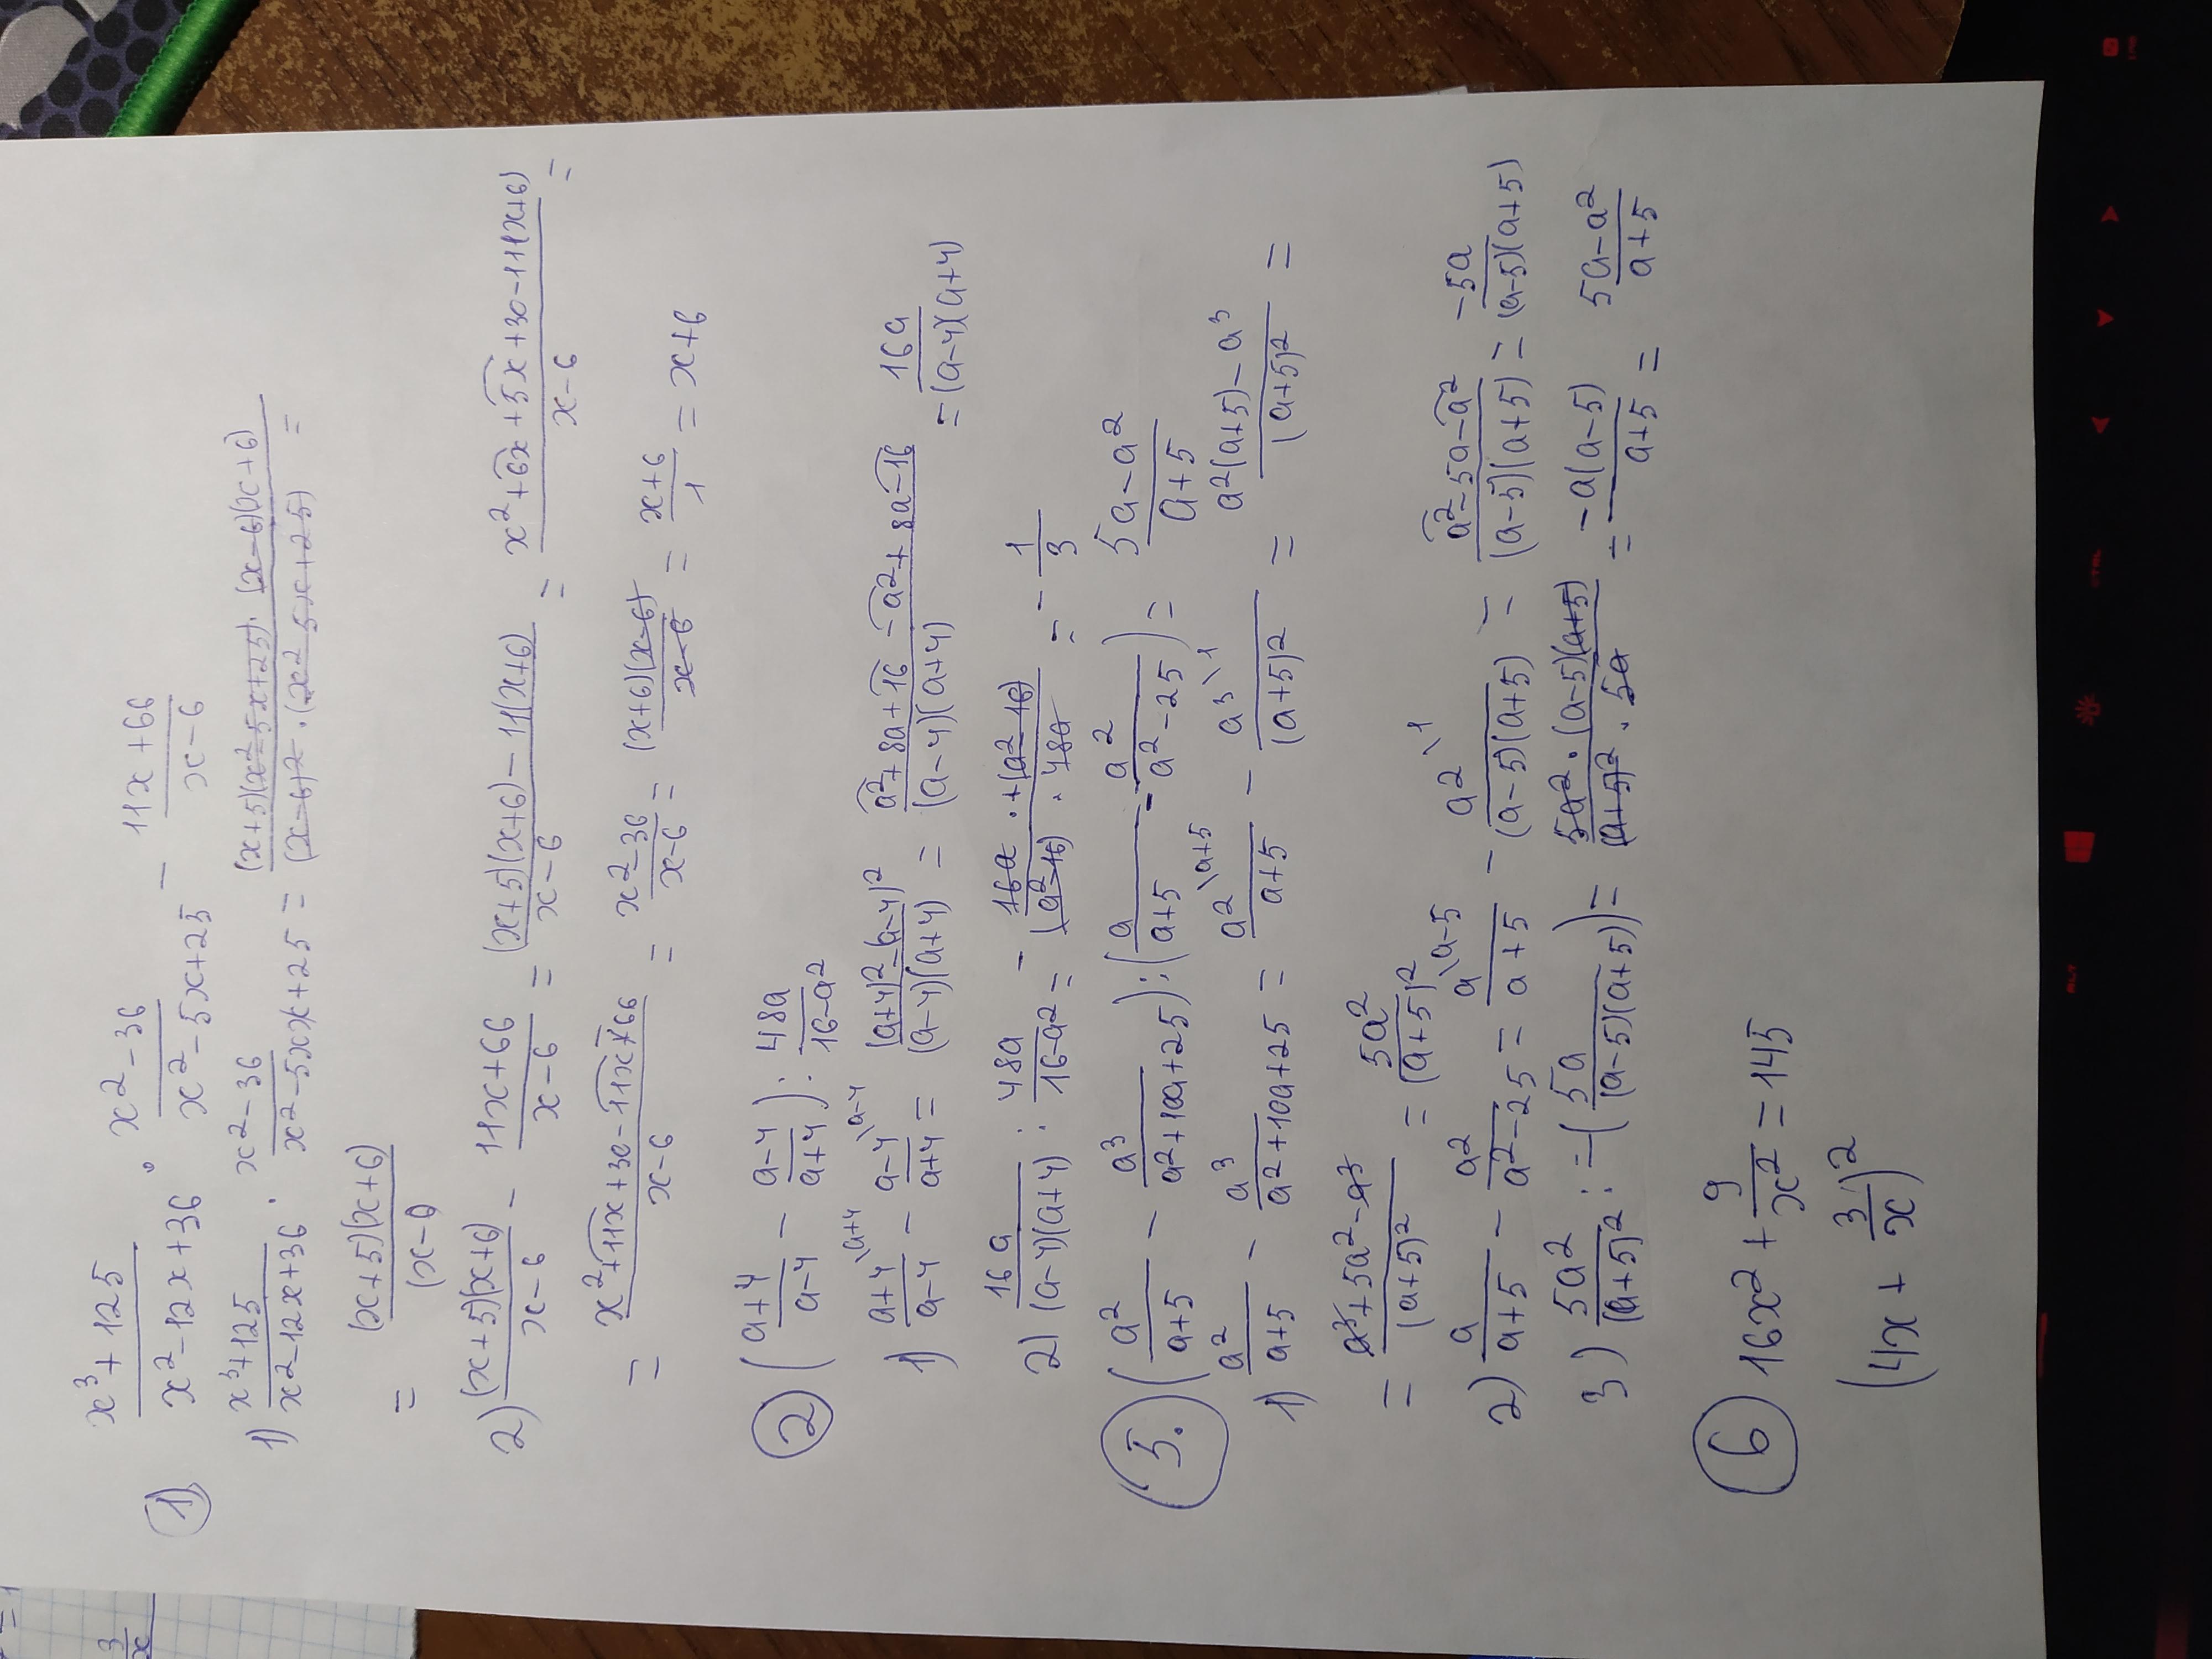 1) (x³+125)/(x²-12x+36) · (x²-36)/(x²-5x+25) - (11x+66)/(x-6)
1) (x³+125)/(x²-12x+36) · (x²-36)/(x²-5x+25) = ((x+5)(x²-5x+25)·(x-6)(x+6))/((x-6)²·(x²-5x+25)) =
= ((x+5)(x+6))/(x-6)
2) ((x+5)(x+6))/(x-6) - (11x+66)/(x-6) = ((x+5)(x+6)-11(x+6))/(x-6) = (x²+6x+5x+30-11(x+6))/(x-6) =
= (x²+11x+30-11x+66)/(x-6) = (x²-36)/(x-6) = ((x+6)(x-6))/(x-6) = (x+6)/1 = x+6
2 ((a+4)/(a-4) - (a-4)/(a+4)) : 48a/(16-a²)
1) (a+4)/(a-4) \a+4 - (a-4)/(a+4) \a-4 = ((a+4)²-(a-4)²)/((a-4)(a+4)) = (a²+8a+16-a²+8a-16)/((a-4)(a+4)) = 16a/((a-4)(a+4))
2) 16a/((a-4)(a+4)) : 48a/(16-a²) = - (16a·+(a²-16))/((a²-16)·48a) = -1/3
5. (a²/(a+5) - a³/(a²+10a+25)) : (a/(a+5) - a²/(a²-25)) = (5a-a²)/(a+5)
1) a²/(a+5) - a³/(a²+10a+25) = a²/(a+5) \a+5 - a³/(a+5)² \1 = (a²(a+5)-a³)/(a+5)² =
= (a³+5a²-a³)/(a+5)² = 5a²/(a+5)²
2) a/(a+5) - a²/(a²-25) = a/(a+5) \a-5 - a²/((a-5)(a+5)) \1 = (a²-5a-a²)/((a-5)(a+5)) = -5a/((a-5)(a+5))
3) 5a²/(a+5)² : -(5a/((a-5)(a+5))) = (5a²·(a-5)(a+5))/((a+5)²·5a) = -a(a-5)/(a+5) = (5a-a²)/(a+5)
6 16x² + 9/x² = 145
(4x + 3/x)²
3/x
ALT
CTRL